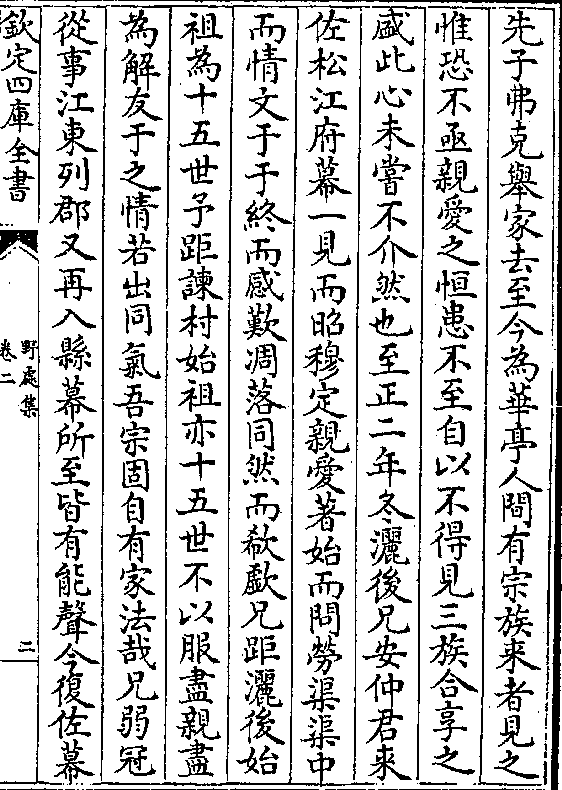 先子弗克舉家去至今為華亭人間有宗族來者見之
惟恐不亟親愛之恒患不至自以不得見三族合享之
盛此心未嘗不介然也至正二年冬灑後兄安仲君來
佐松江府幕一見而昭穆定親愛著始而問勞渠渠中
而情文于于終而感歎凋落同然而欷歔兄距灑後始
祖為十五世予距諫村始祖亦十五世不以服盡親盡
為解友于之情若出同氣吾宗固自有家法哉兄弱冠
從事江東列郡又再入縣幕所至皆有能聲今復佐幕
欽定四庫全書
野處集
卷二
二